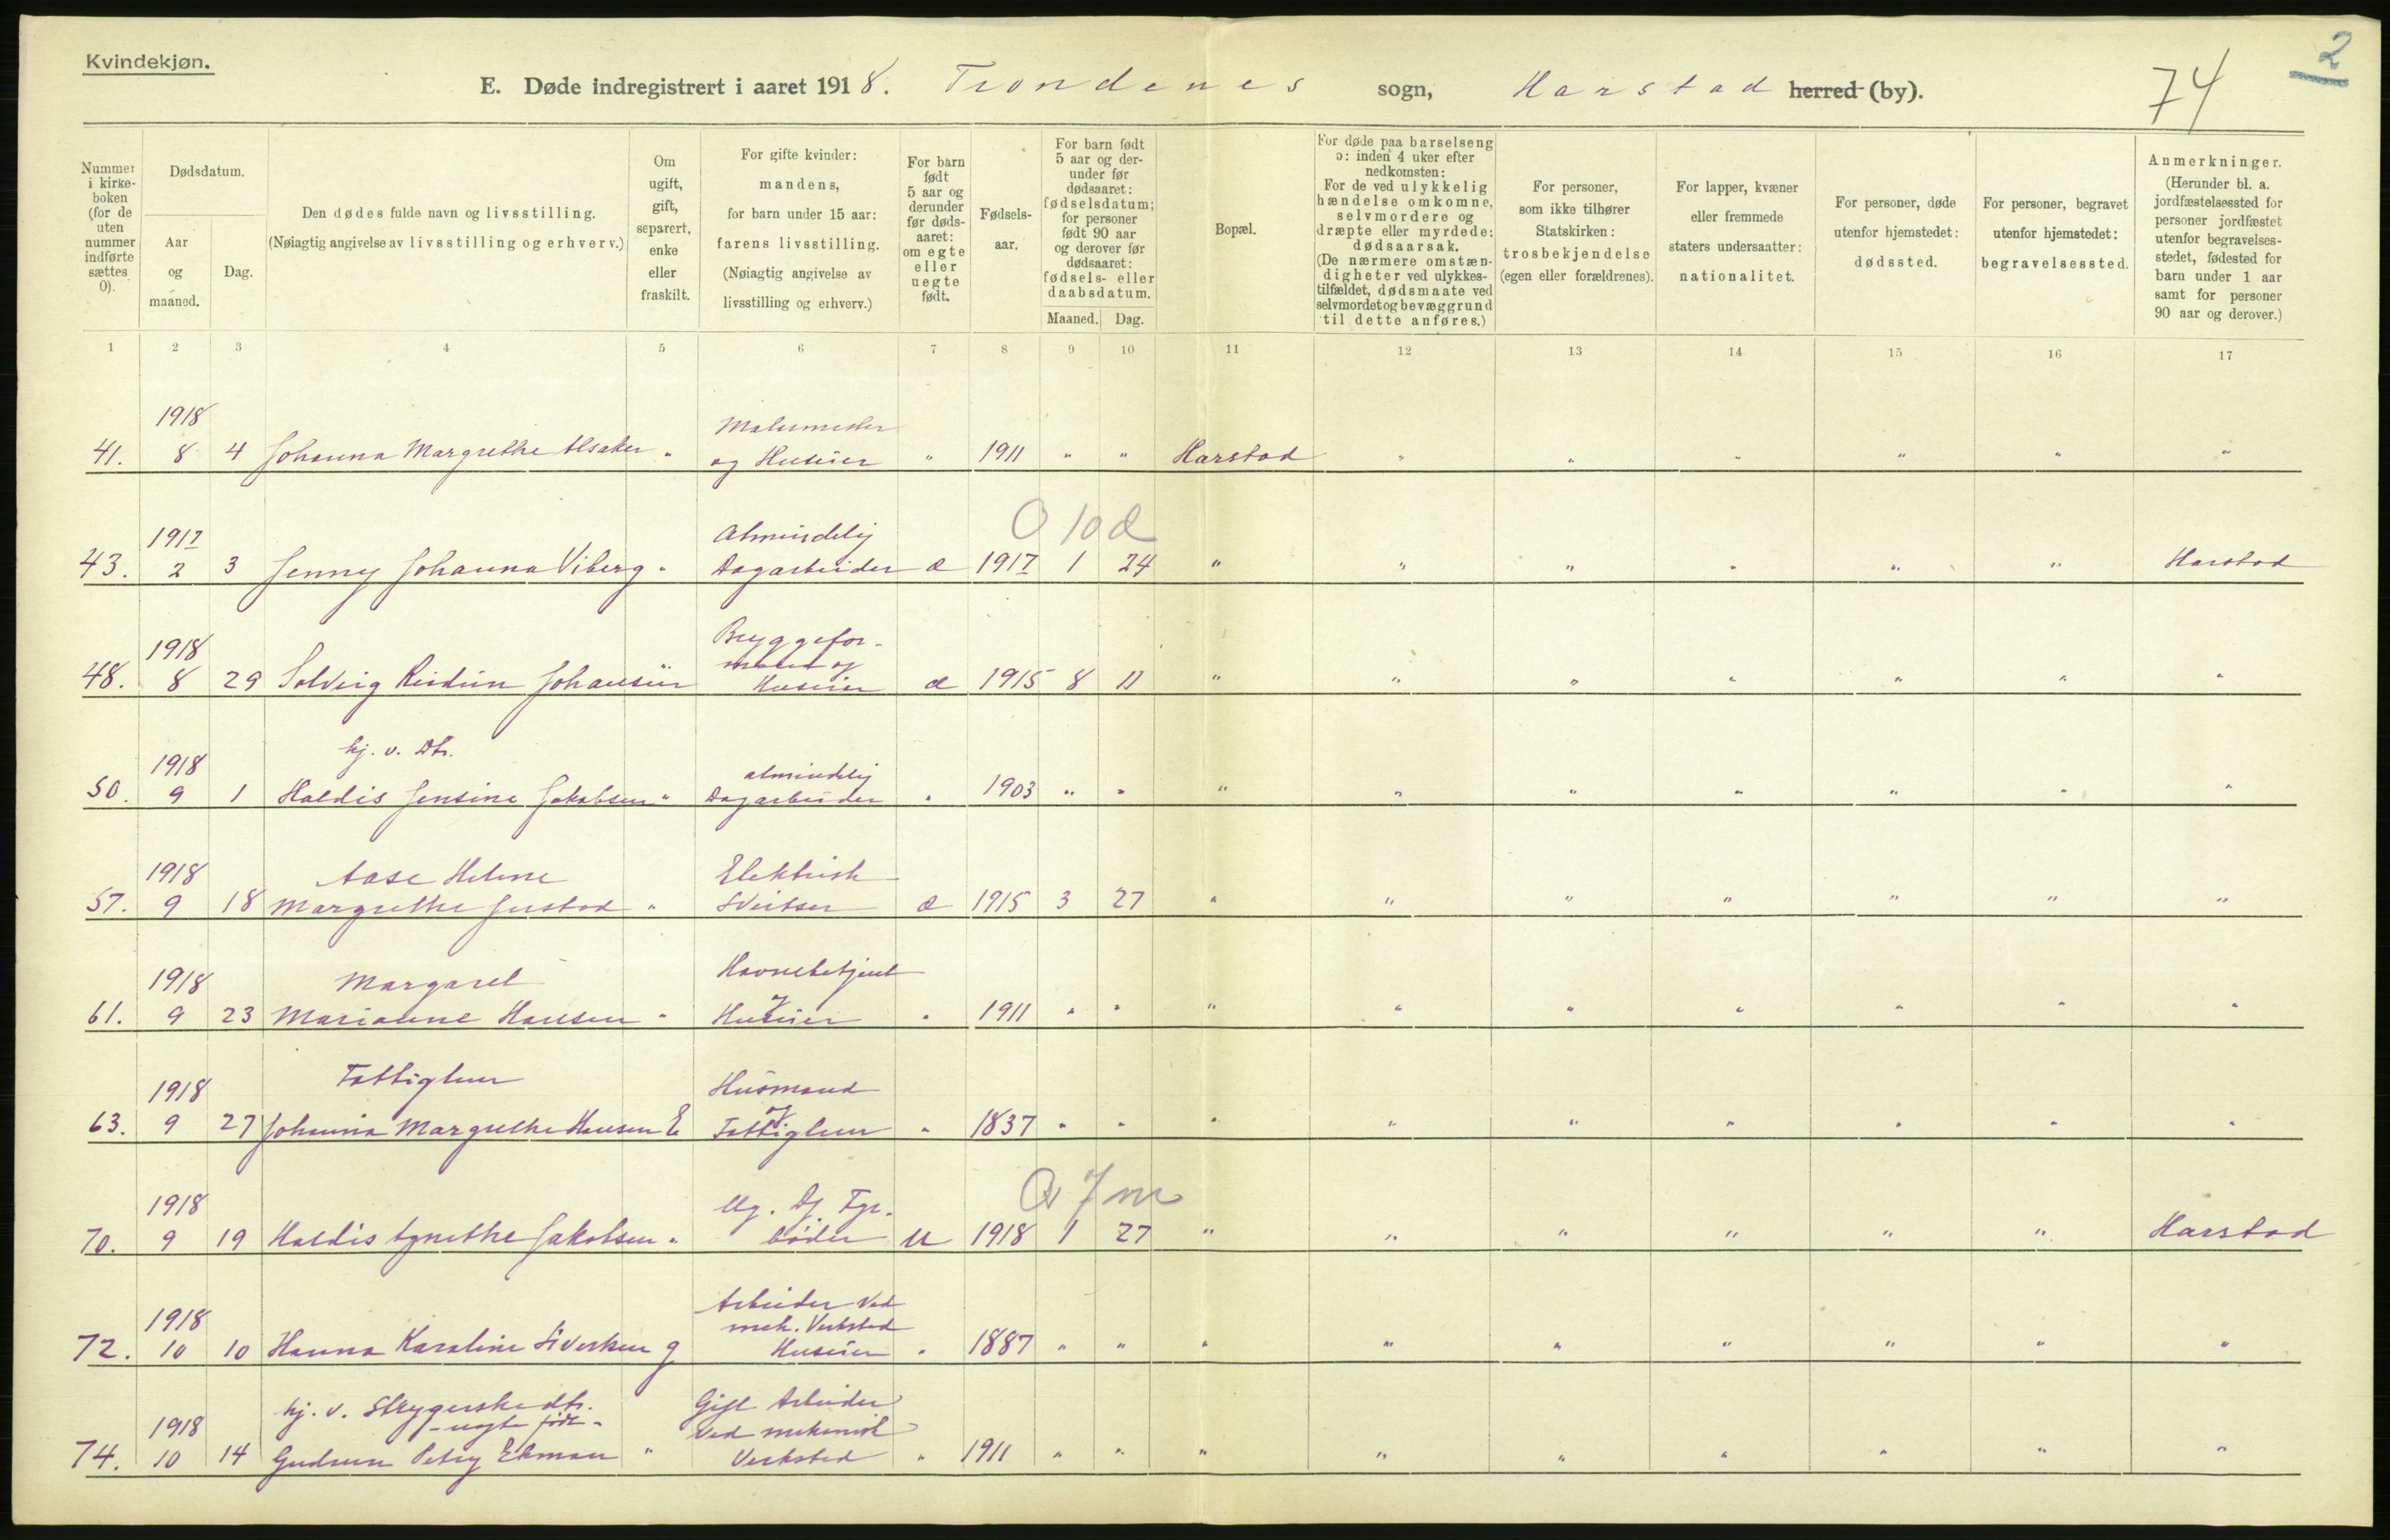 Kvindekjøn.
2
74
E. Døde indregistrert i aaret 1918. Trondenes sogn, Harstad herred (by).
Nummer i kirkeboken (for de uten nummer indførte sættes 0).
Dødsdatum.
Aar og maaned.
Dag.
Den dødes fulde navn og livsstilling.
(Nøiagtig angivelse av livsstilling og erhverv.)
Om ugift, gift, separert, enke eller fraskilt.
For gifte kvinder: mandens, for barn under 15 aar: farens livsstilling. (Nøiagtig angivelse av livsstilling og erhverv.)
For barn født 5 aar og derunder før dødsaaret: om egte eller uegte født.
Fødselsaar.
For barn født 5 aar og derunder før dødsaaret: fødselsdatum; for personer født 90 aar og derover før dødsaaret: fødsels- eller daabsdatum.
Maaned. Dag.
Bopæl.
For døde paa barselseng ɔ: inden 4 uker efter nedkomsten: For de ved ulykkelig hændelse omkomne, selvmordere og dræpte eller myrdede: dødsaarsak. (De nærmere omstændigheter ved ulykkestilfældet, dødsmaate ved selvmordet og bevæggrund til dette anføres.)
For personer, som ikke tilhører Statskirken: trosbekjendelse (egen eller forældrenes).
For lapper, kvæner eller fremmede staters undersaatter: nationalitet.
For personer, døde utenfor hjemstedet: dødssted.
For personer, begravet utenfor hjemstedet: begravelsessted.
Anmerkninger. (Herunder bl. a. jordfæstelsessted for personer jordfæstet utenfor begravelsesstedet, fødested for barn under 1 aar samt for personer 90 aar og derover.)
1 2 3 4 5 6 7 8 9 10 11 12 13 14 15 16 17
1918 Malermester
41. 8 4 Johanna Margrethe Alsaker " og Huseier " 1911 " " Harstad " " " " " "
1917 Almindelig 0 10 d
43. 2 3 Jenny Johanna Viberg " Dagarbeider æ 1917 1 24 " " " " " " Harstad
1918 Bryggefor-
mand og
48. 8 29 Solveig Reidun Johansen Huseier æ 1915 8 11 " " " " " " "
1918 hj. v. Dtr. almindelig
50. 9 1 Haldis Jensine Jakobsen " Dagarbeider " 1903 " " " " " " " " "
1918 Aase Helene Elektrisk
57. 9 18 Margrethe Justad " Sveitser æ 1915 3 27 " " " " " " "
1918 Margaret Havnebetjent
og
61. 9 23 Marianne Hansen " Huseier " 1911 " " " " " " " " "
1918 Fattiglem Husmand
og
63. 9 27 Johanna Margrethe Hansen E Fattiglem " 1837 " " " " " " " " "
1918 Ug. Dj. Fyr- 0 7 m
70. 9 19 Haldis Agnethe Jakobsen " bøder u 1918 1 27 " " " " " " Harstad
1918 Arbeider ved
mek. Verksted
72. 10 10 Hanna Karoline Siversen g Huseier " 1887 " " " " " " " " "
hj. v. Strygerske dtr. Gift Arbeider
1918 - uegte født - ved mekanisk
74. 10 14 Gudrun Petry Ekman " Verksted " 1911 " " " " " " " " "